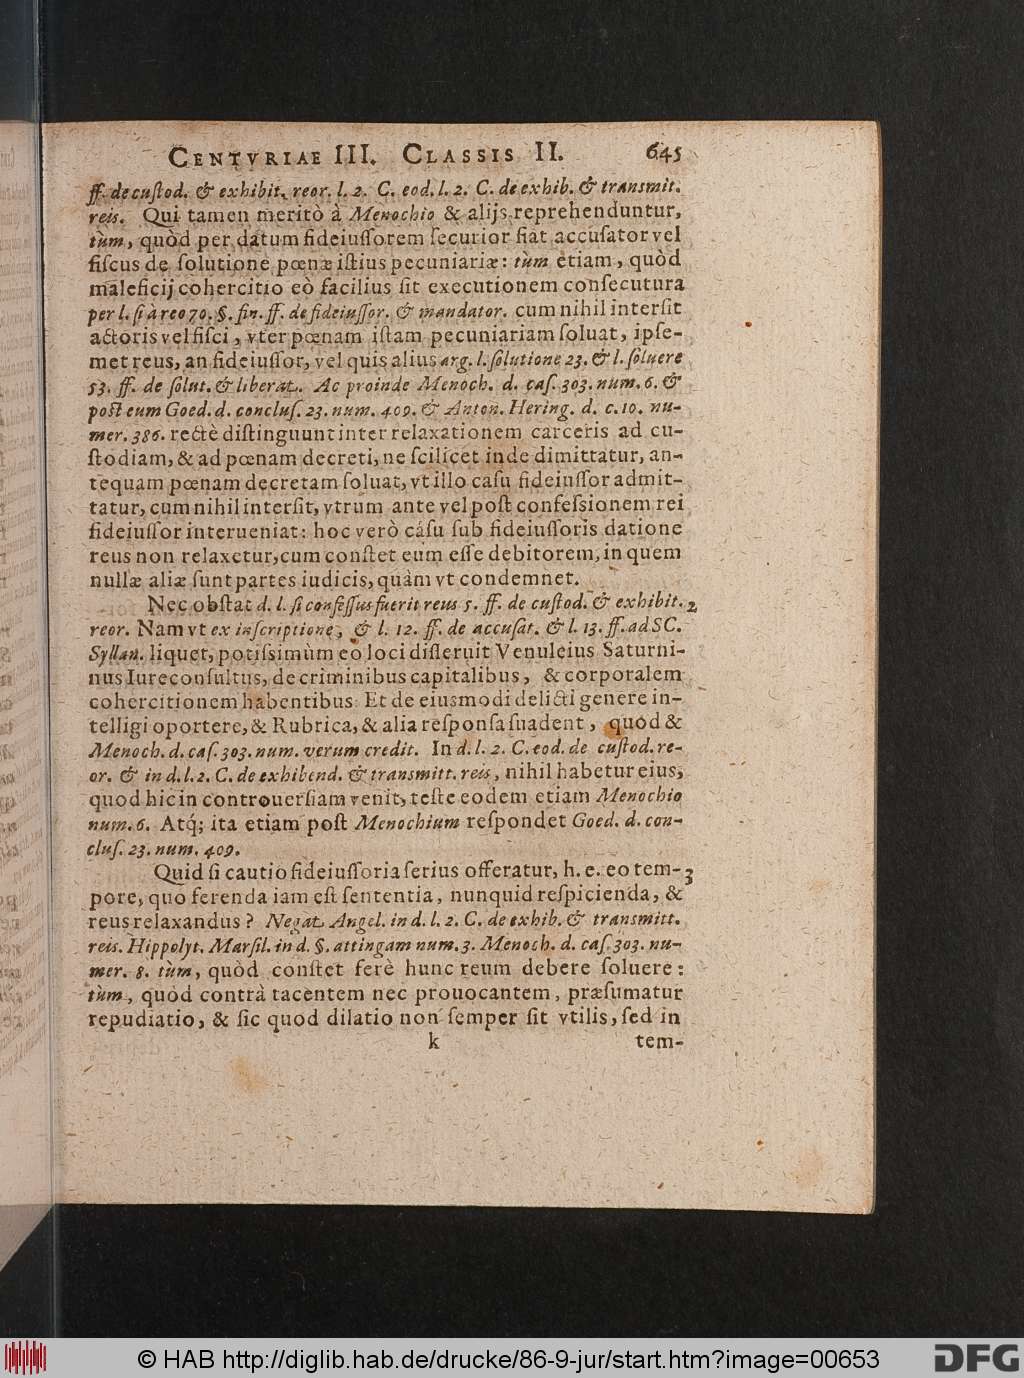 CENTVRIAE III. CLASSIS II. 645
ff. de cuſtod. & exhibit. reor. l. 2. C. eod. l. 2. C. de exhib. & transmit.
reis. Qui tamen meritò à Menochio & alijs reprehenduntur,
tùm, quòd per datum fideiuſſorem ſecurior fiat accuſator vel
fiſcus de ſolutione pœnæ iſtius pecuniariæ: tùm etiam, quòd
maleficij cohercitio eò facilius ſit executionem conſecutura
per l. ſi à reo 70. §. fin. ff. de fideiuſſor. & mandator. cum nihil interſit
actoris vel fiſci, vter pœnam iſtam pecuniariam ſoluat, ipſe-
met reus, an fideiuſſor, vel quis alius arg. l. ſolutione 23. & l. ſoluere
53. ff. de ſolut. & liberat. Ac proinde Menoch. d. caſ. 303. num. 6. &
poſt eum Goed. d. concluſ. 23. num. 409. & Anton. Hering. d. c. 10. nu-
mer. 386. rectè diſtinguunt inter relaxationem carceris ad cu-
ſtodiam, & ad pœnam decreti, ne ſcilicet inde dimittatur, an-
tequam pœnam decretam ſoluat, vt illo caſu fideiuſſor admit-
tatur, cum nihil interſit, vtrum ante vel poſt confeſsionem rei
fideiuſſor interueniat: hoc verò cáſu ſub fideiuſſoris datione
reus non relaxetur, cum conſtet eum eſſe debitorem, in quem
nullæ aliæ ſunt partes iudicis, quàm vt condemnet.
Nec obſtat d. l. ſi confeſſus fuerit reus 5. ff. de cuſtod. & exhibit. 2
reor. Nam vt ex inſcriptione, & l. 12. ff. de accuſat. & l. 13. ff. ad SC.
Syllan. liquet, potiſsimùm eò loci diſſeruit Venuleius Saturni-
nus Iureconſultus, de criminibus capitalibus, & corporalem
cohercitionem habentibus: Et de eiusmodi delicti genere in-
telligi oportere, & Rubrica, & alia reſponſa ſuadent, quòd &
Menoch. d. caſ. 303. num. verum credit. In d. l. 2. C. eod. de cuſtod. re-
or. & in d. l. 2. C. de exhibend. & transmitt. reis, nihil habetur eius,
quod hic in controuerſiam venit, teſte eodem etiam Menochio
num. 6. Atq́; ita etiam poſt Menochium reſpondet Goed. d. con-
cluſ. 23. num. 409.
Quid ſi cautio fideiuſſoria ſerius offeratur, h. e. eo tem- 3
pore, quo ferenda iam eſt ſententia, nunquid reſpicienda, &
reus relaxandus? Negat. Angel. in d. l. 2. C. de exhib. & transmitt.
reis. Hippolyt. Marſil. in d. §. attingam num. 3. Menoch. d. caſ. 303. nu-
mer. 8. tùm, quòd conſtet ferè hunc reum debere ſoluere:
tùm, quòd contrà tacentem nec prouocantem, præſumatur
repudiatio, & ſic quod dilatio non ſemper ſit vtilis, ſed in
k tem-
© HAB http://diglib.hab.de/drucke/86-9-jur/start.htm?image=00653
DFG